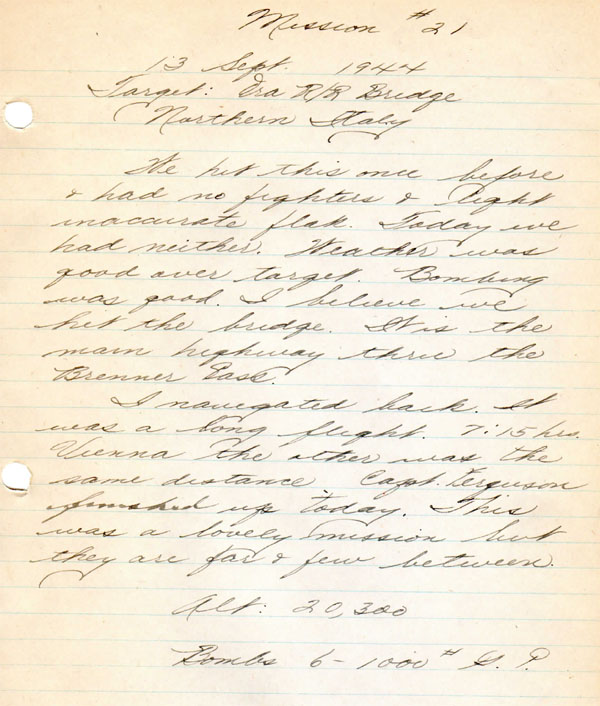 Mission #21
13 Sept. 1944
Target: Ora R/R Bridge
Northern Italy
We hit this once before
& had no fighters & light
inaccurate flak. Today we
had neither. Weather was
good over target. Bombing
was good. I believe we
hit the bridge. It is the
main highway thru the
Brenner Pass.
I navigated back. It
was a long flight. 7:15 hrs.
Vienna the other was the
same distance Capt. Ferguson
finished up today. This
was a lovely mission but
they are far & few between.
Alt: 20,300
Bombs 6-1000# G.P.